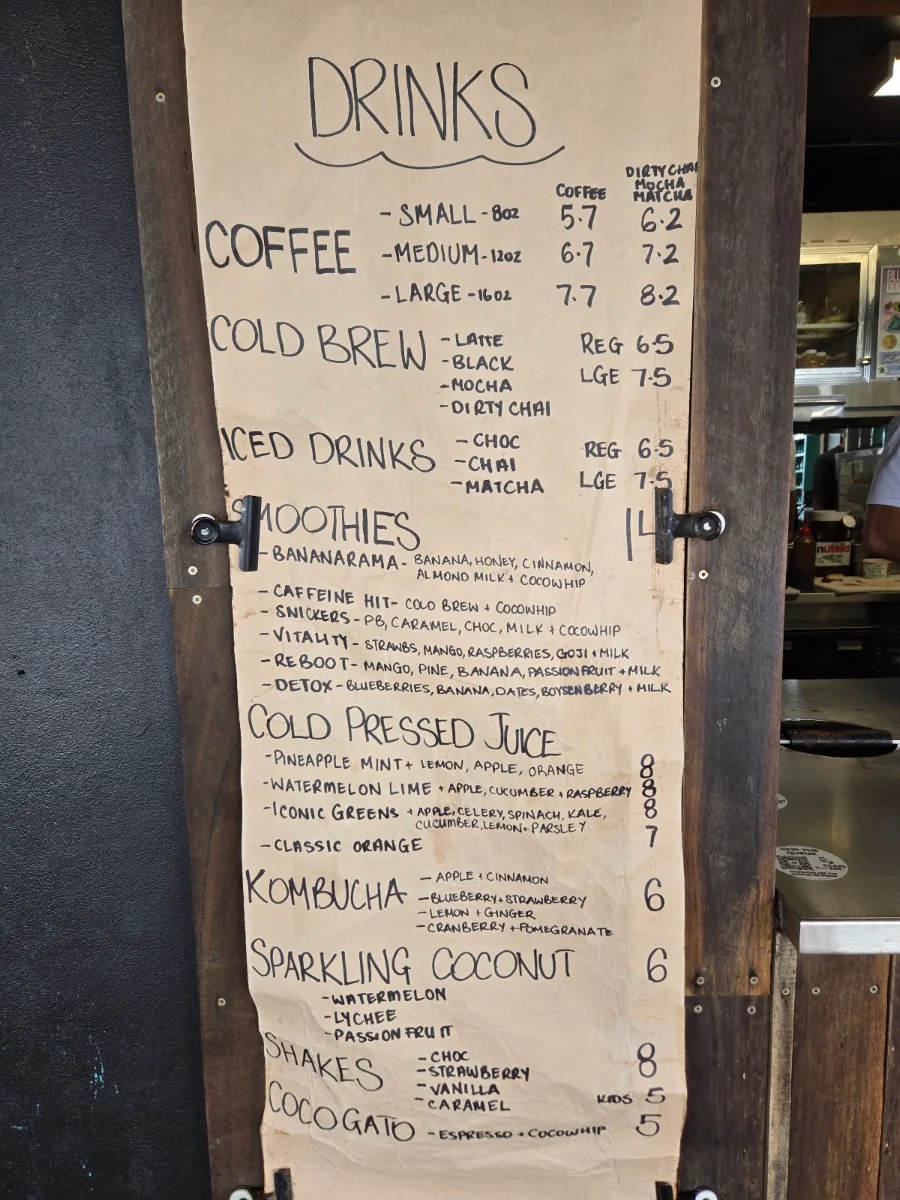 DRINKS
COFFEE DIRTY CHAI MOCHA MATCHA
COFFEE
- SMALL - 8oz 5.7 6.2
- MEDIUM - 12oz 6.7 7.2
- LARGE - 16oz 7.7 8.2
COLD BREW - LATTE REG 6.5
- BLACK LGE 7.5
- MOCHA
- DIRTY CHAI
ICED DRINKS - CHOC REG 6.5
- CHAI LGE 7.5
- MATCHA
SMOOTHIES 14
- BANANARAMA - BANANA, HONEY, CINNAMON,
ALMOND MILK + COCOWHIP
- CAFFEINE HIT - COLD BREW + COCOWHIP
- SNICKERS - PB, CARAMEL, CHOC, MILK + COCOWHIP
- VITALITY - STRAWBS, MANGO, RASPBERRIES, GOJI + MILK
- REBOOT - MANGO, PINE, BANANA, PASSIONFRUIT + MILK
- DETOX - BLUEBERRIES, BANANA, DATES, BOYSENBERRY + MILK
COLD PRESSED JUICE
- PINEAPPLE MINT + LEMON, APPLE, ORANGE 8
- WATERMELON LIME + APPLE, CUCUMBER + RASPBERRY 8
- ICONIC GREENS + APPLE, CELERY, SPINACH, KALE, 8
CUCUMBER, LEMON + PARSLEY
- CLASSIC ORANGE 7
KOMBUCHA - APPLE + CINNAMON 6
- BLUEBERRY + STRAWBERRY
- LEMON + GINGER
- CRANBERRY + POMEGRANATE
SPARKLING COCONUT 6
- WATERMELON
- LYCHEE
- PASSION FRUIT
SHAKES - CHOC 8
- STRAWBERRY
- VANILLA KIDS 5
- CARAMEL
COCO GATO - ESPRESSO + COCOWHIP 5
nutella
SKIP THE
QUEUE